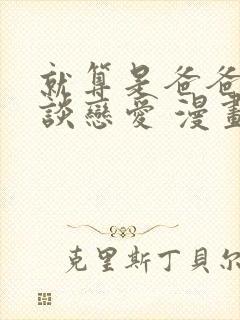 就算是爸爸
談戀愛 漫畫
克里斯丁貝尔